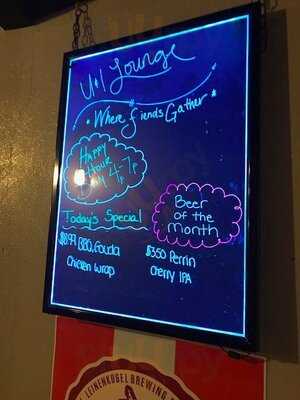 U+I Lounge
Where fiends Gather
HAPPY
Hour
4-7p
Today's Special
$8.99 BBQ Gouda
Chicken Wrap
Beer
of the
Month
$350 Perrin
Cherry IPA
LEINENKUGEL BREWING